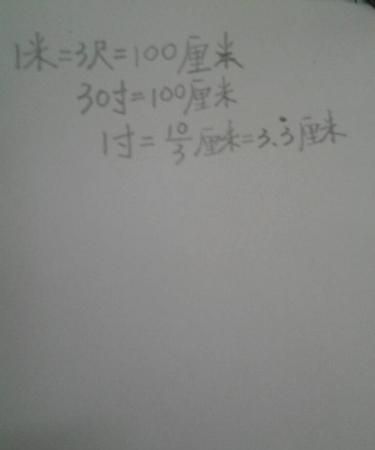 1米=3尺=100厘米
30寸=100厘米
1寸=10/3厘米=3.3̇厘米